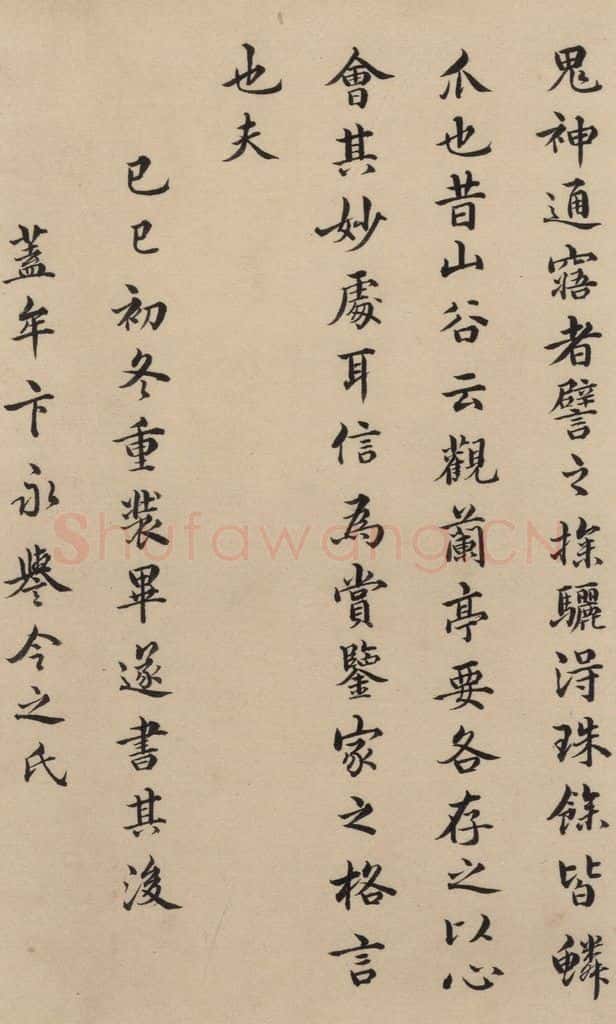 鬼神通寤者譬之探驪淂珠餘皆鱗
爪也昔山谷云觀蘭亭要各存之以心
會其妙處耳信為賞鑒家之格言
也夫
己巳初冬重裝畢遂書其後
蓋牟卞永譽令之氏
Shufawang.CN